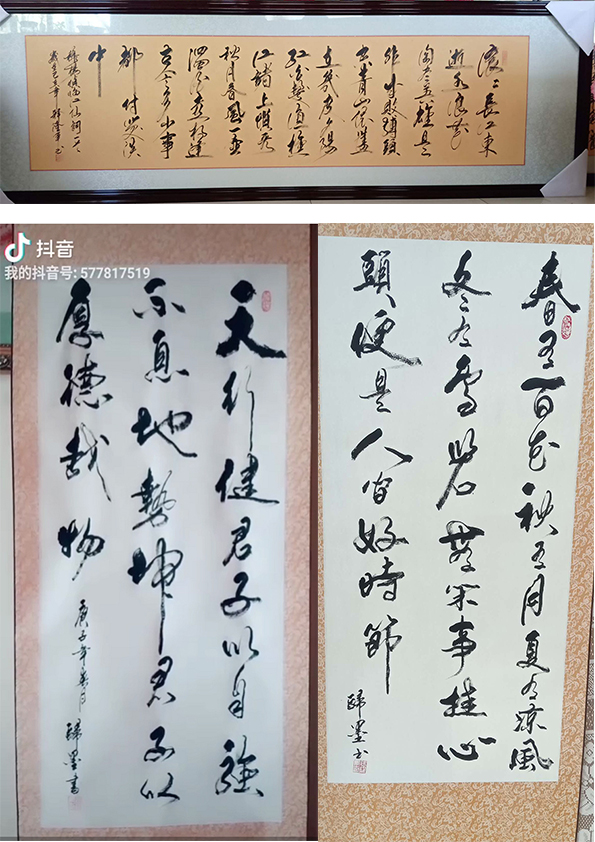 滚滚長江東
逝水浪花
淘尽英雄是非
成敗轉頭
空青山依舊
在幾度夕陽
紅白髮漁樵
江渚上慣看
秋月春風一壺
濁酒喜相逢
古今多少事
都付笑談
中
抖音
我的抖音号: 577817519
天行健君子以自強
不息地勢坤君子以
厚德載物
庚子年
歸墨書
春有百花秋有月夏有涼風
冬有雪若無閑事挂心
頭便是人间好時節
歸墨书